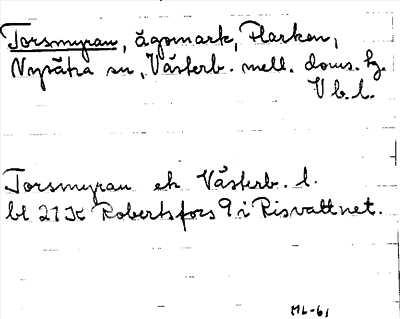 Torsmyran, ägomark, Flarken,
Nysätra sn, Västerb. mell. doms. h.
Vb. l.
Torsmyran ek Västerb. l.
bl 21K Robertsfors 9 i Risvattnet.